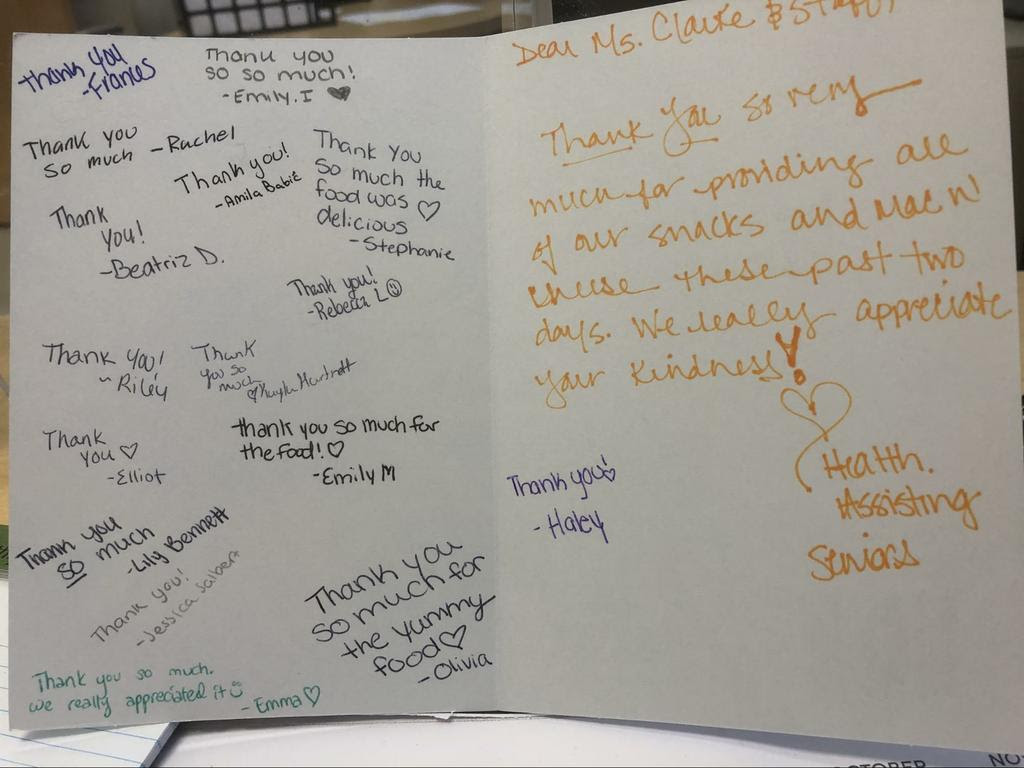 Thank you
-Frances
Thank you
so so much!
-Emily.I ♥
Thank you
so much -Rachel
Thank you!
-Amila Babic
Thank You
so much the
food was ♡
delicious
-Stephanie
Thank
you!
-Beatriz D.
Thank you!
-Rebecca L ☺
Thank you!
~Riley
Thank
you so
much
♡Kayla Hartnett
Thank
you ♡
-Elliot
thank you so much for
the food! ♡
-Emily M
Thank you
so much
-Lily Bennett
Thank you!
-Jessica
Thank you
so much for
the yummy
food♡
-Olivia
Thank you so much.
we really appreciated it ☺
-Emma♡
Dear Ms. Claire & Staff,
Thank You so very
much for providing all
of our snacks and Mac n'
cheese these past two
days. We really appreciate
your kindness!
♡
Health
Assisting
Seniors
Thank you!
-Haley
OCTOBER
NO